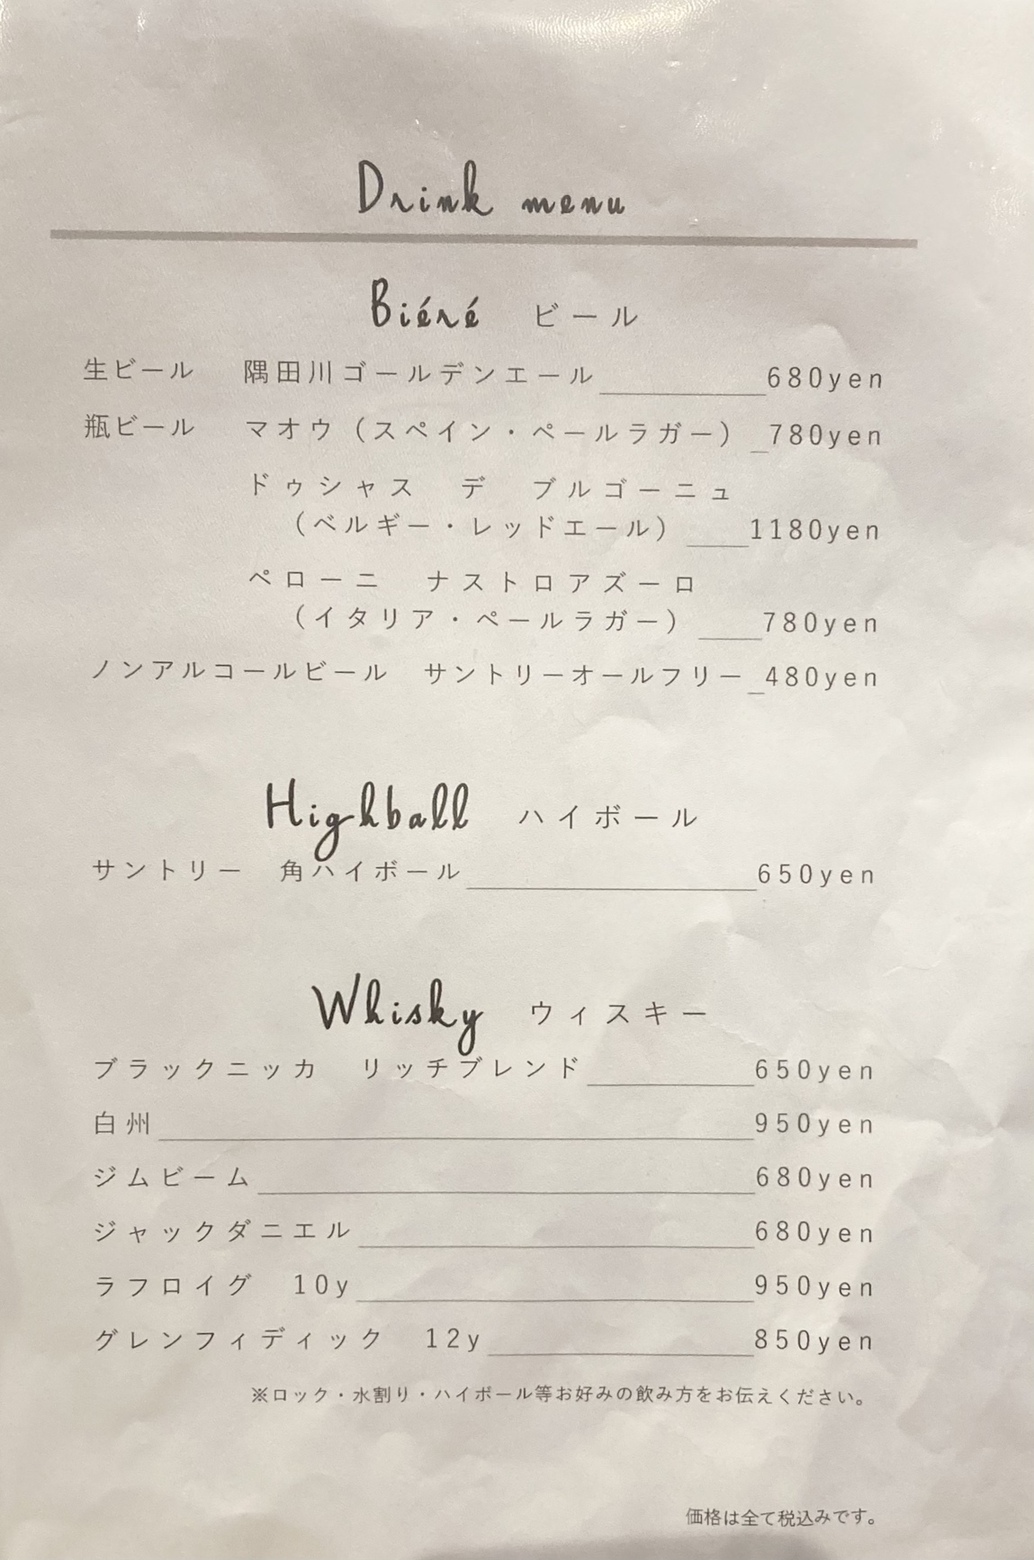 Drink menu
Biéré ビール
生ビール 隅田川ゴールデンエール 680yen
瓶ビール マオウ（スペイン・ペールラガー） 780yen
ドゥシャス デ ブルゴーニュ
（ベルギー・レッドエール） 1180yen
ペローニ ナストロアズーロ
（イタリア・ペールラガー） 780yen
ノンアルコールビール サントリーオールフリー 480yen
Highball ハイボール
サントリー 角ハイボール 650yen
Whisky ウィスキー
ブラックニッカ リッチブレンド 650yen
白州 950yen
ジムビーム 680yen
ジャックダニエル 680yen
ラフロイグ 10y 950yen
グレンフィディック 12y 850yen
※ロック・水割り・ハイボール等お好みの飲み方をお伝えください。
価格は全て税込みです。